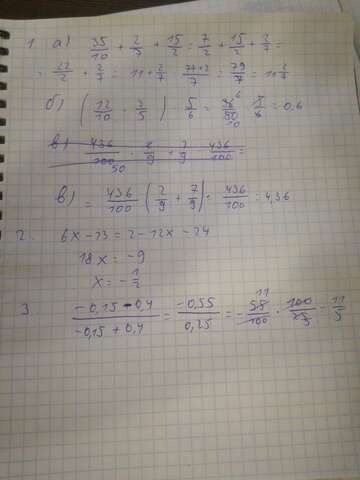 1 а) 35/10 + 2/7 + 15/2 = 7/2 + 15/2 + 2/7 =
= 22/2 + 2/7 = 11 + 2/7 = 77+2/7 = 79/7 = 11 2/7
б) (12/10 - 2/5) · 5/6 = 0,6
в) 436/100 · 2/9 + 7/9 · 436/100 =
в) = 436/100 (2/9 + 7/9) = 436/100 = 4,36
2. 6x - 13 = 2 - 12x - 24
18x = -9
x = -1/2
3 -0,15 - 0,4 / -0,15 + 0,4 = -0,55 / 0,25 = - 55/100 · 100/25 = 11/5